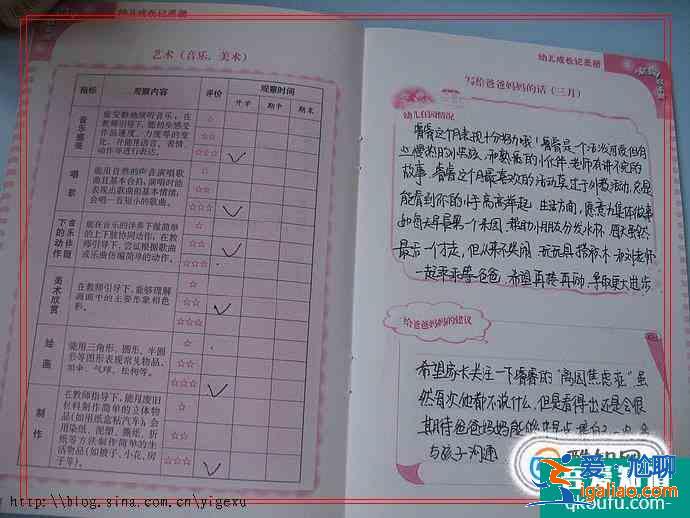 幼儿成长记录册
艺术（音乐、美术）
指标
观察内容
评价
观察时间
开学
期中
期末
音乐感受
能安静地倾听音乐；在
教师引导下，能初步感受
作品速度、力度等的变
化，并能用语言、表情、
动作等进行表达。
☆
☆☆
☆☆☆
唱歌
能用自然的声音演唱歌
曲且基本合拍，演唱时能
表现出歌曲的基本情绪，
会唱一首短小的歌曲。
☆
☆☆
☆☆☆
音乐伴随下的动作
能在音乐的伴奏下做简单
的上下肢协同动作，在教
师引导下，尝试根据歌曲
或乐曲仿编简单的动作。
☆
☆☆
☆☆☆
美术欣赏
在教师引导下，能够理解
画面中的主要形象和色
彩。
☆
☆☆
☆☆☆
绘画
能用三角形、圆形、半圆
形等图形表现常见物品，
如伞、气球、松树等。
☆
☆☆
☆☆☆
制作
在教师指导下，能用废旧
材料制作简单的立体物
品(如用纸盒粘汽车)；会
用染纸、泥塑、撕纸、折
纸等方法制作简单的生
活物品(如被子、小花、房
子等)。
☆
☆☆
☆☆☆
幼儿成长记录册
写给爸爸妈妈的话（三月）
幼儿在园情况
这个月表现十分努力哦！
是一个活泼可爱但有
慢热的小男孩，和熟悉的小伙伴、老师有讲不完的
故事。
这个月最喜欢的活动莫过于小数活动，总是
能看到你的小手高高举起。生活方面，愿意为集体做事
如每天早晨第一个来园，帮助小朋友分发水杯，周末虽然
最后一个才走，但从来不哭闹，玩玩具搭积木，承刘老师
一起乖乖等爸爸，希望再接再励，争取更大进步
给爸爸妈妈的建议
希望家长关注一下
的“离园焦虑症”虽
然每次他都不说什么，但是看得出还是会很
期待爸爸妈妈能够早点
与孩子沟通
http://blog.sina.com.cn/yigexu
爱尬聊
www.igaliao.com
qk5ufu.com